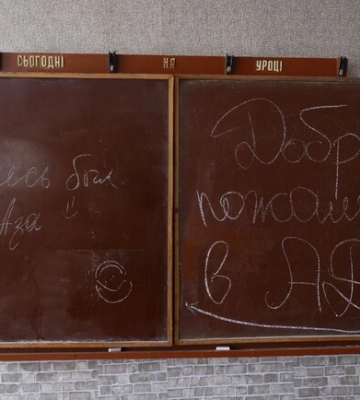 СЬОГОДНІ НА УРОЦІ
есь был
Аза
Добр
пожал
в АД